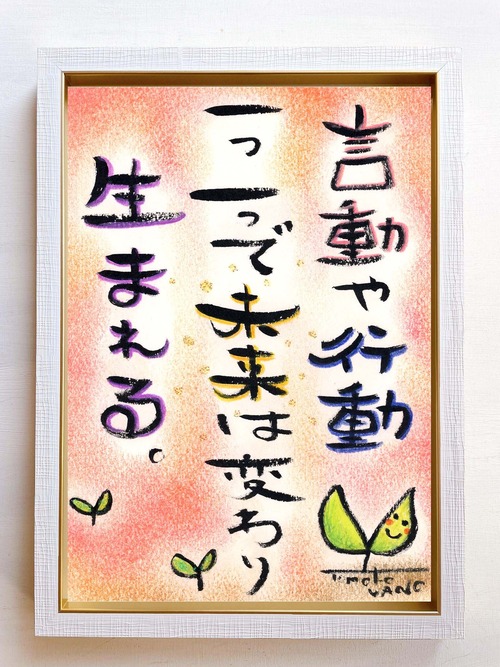 言動や行動
一つ一つで未来は変わり
生まれる。